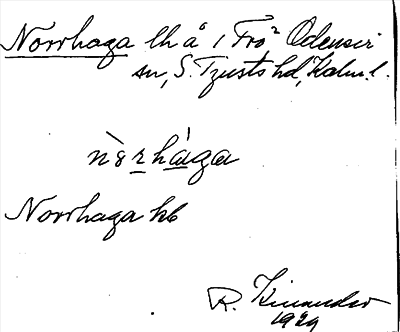 Norrhaga lh å 1 Frö² Odensvi
sn, S. Tjusts hd, Kalm. l.
nòrhàga
Norrhaga hb
R. Kinander
1929